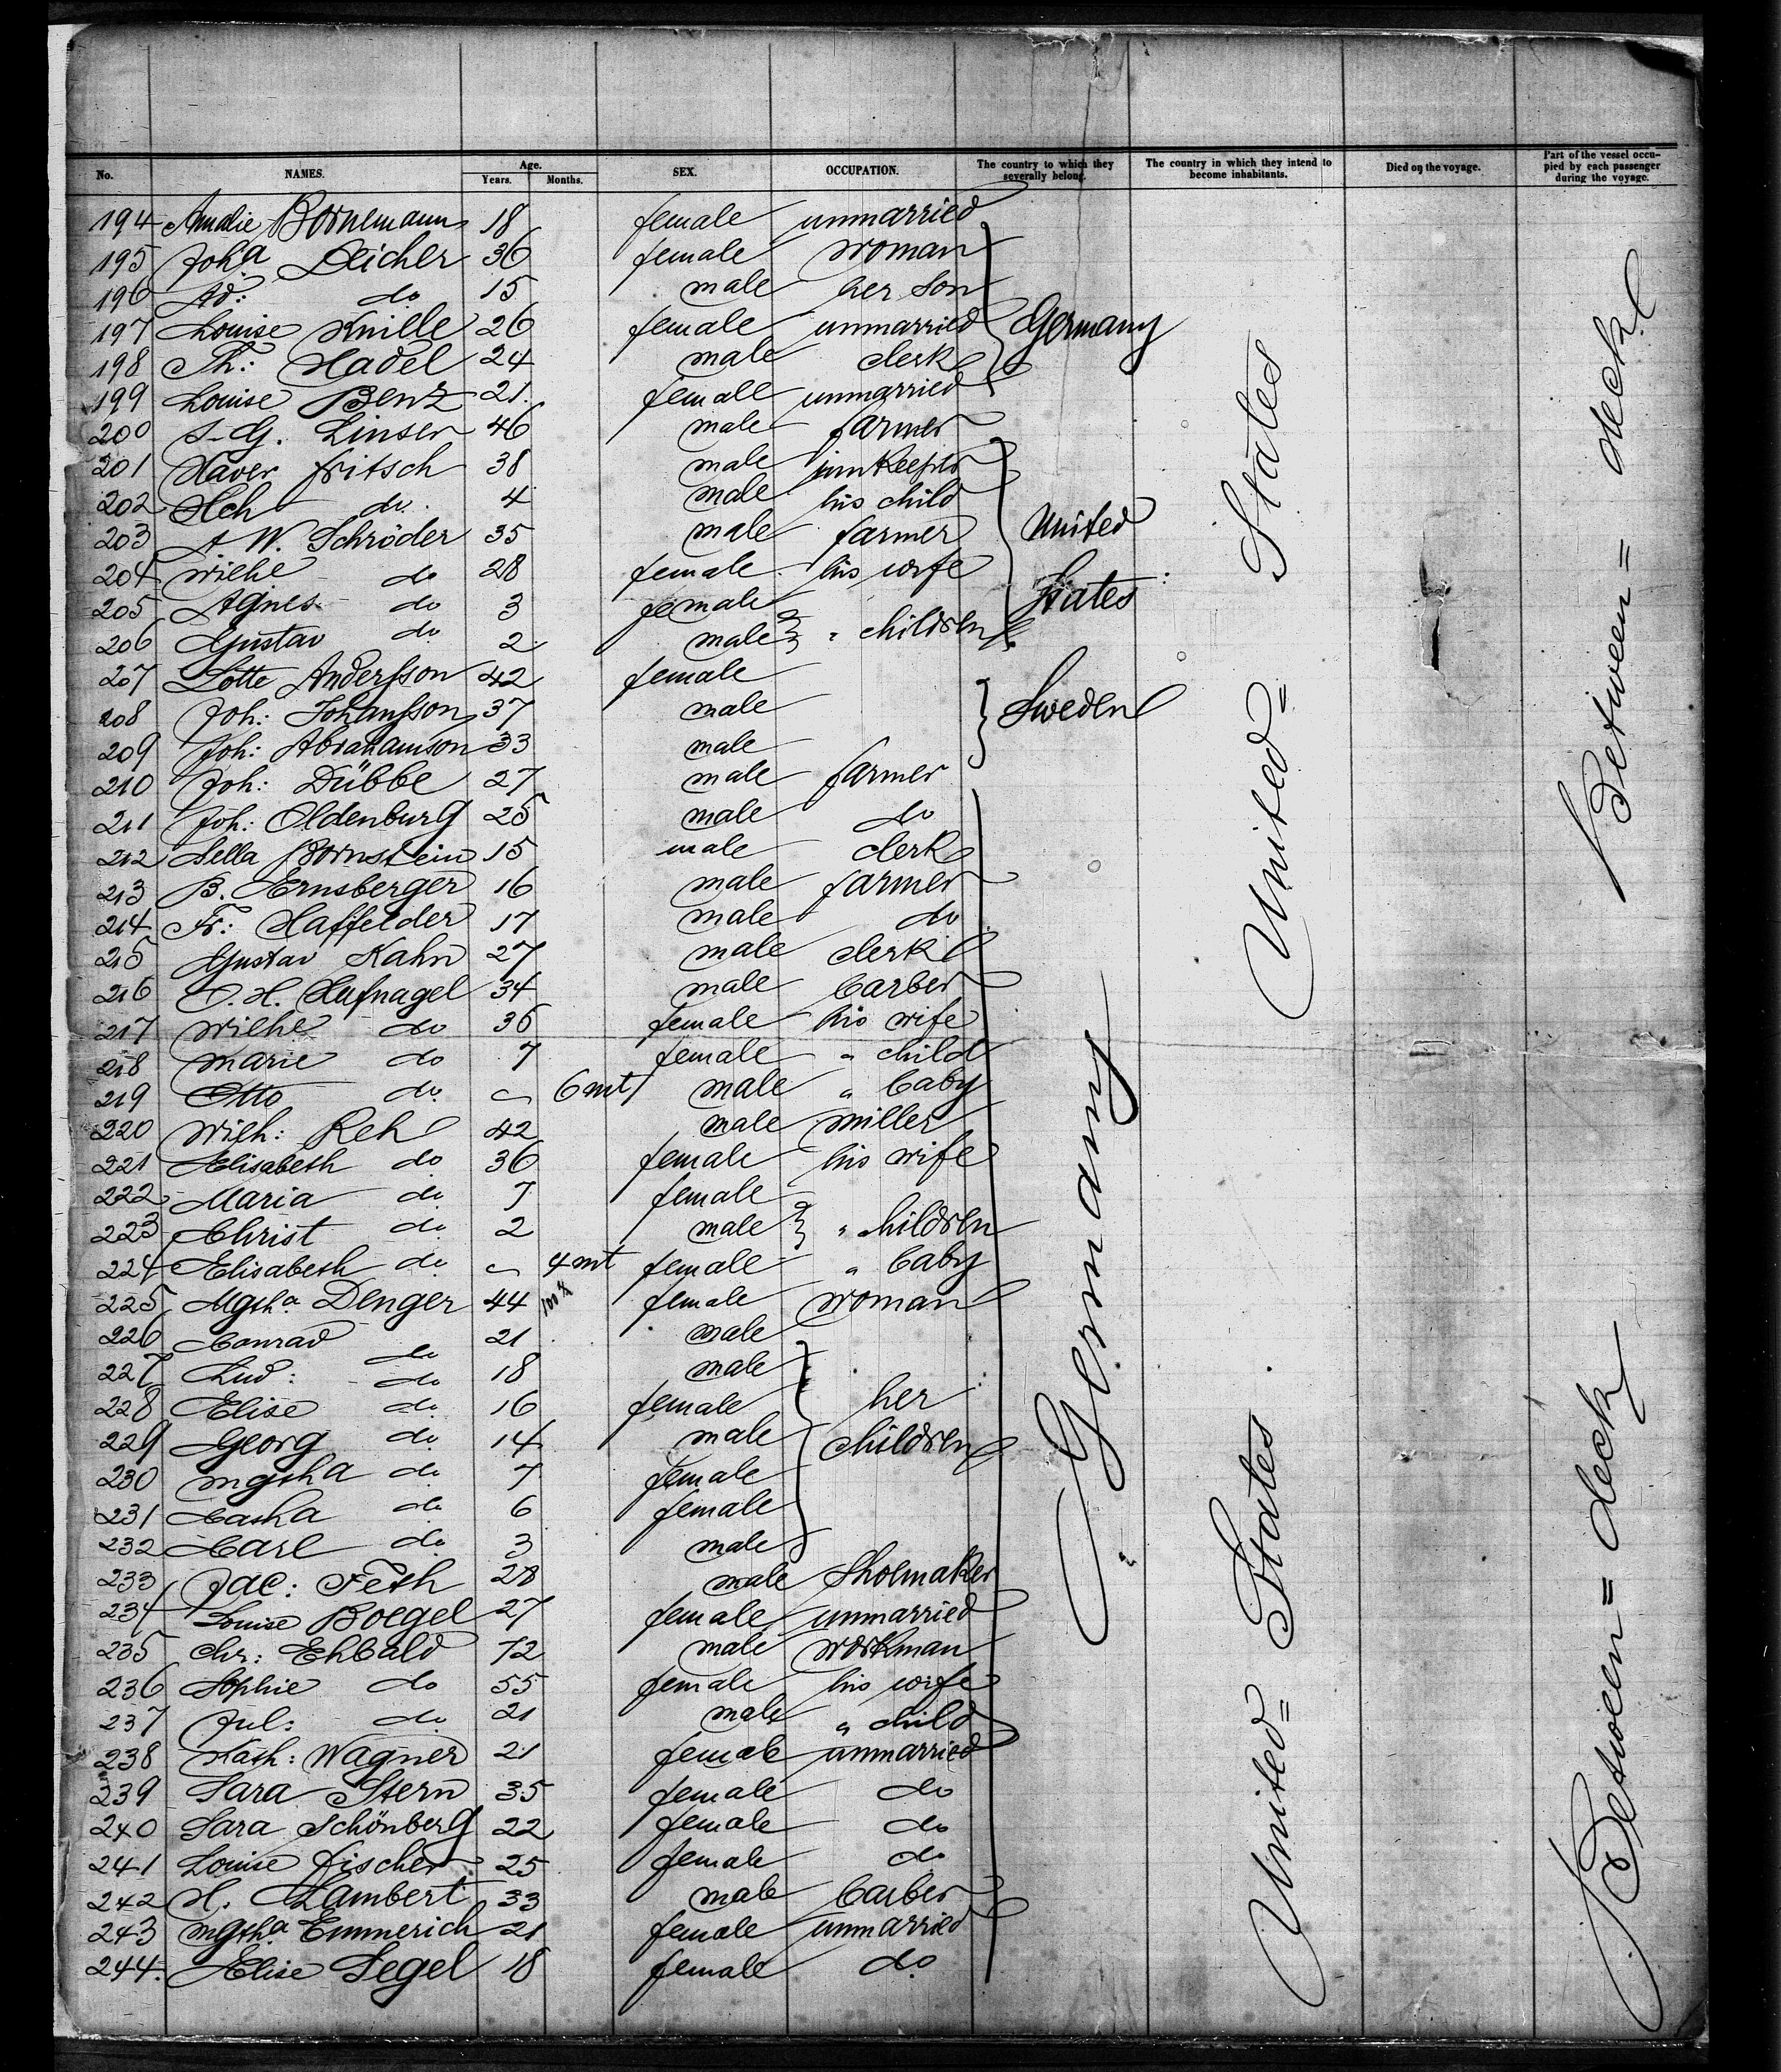 No. NAMES. Age. Years. Months. SEX. OCCUPATION. The country to which they severally belong. The country in which they intend to become inhabitants. Died on the voyage. Part of the vessel occupied by each passenger during the voyage.
194 Amalie Bornemann 18 female unmarried
195 Joha Deicher 36 female woman
196 Ad: do 15 male her son
197 Louise Knille 26 female unmarried Germany
198 Th: Hadel 24 male clerk
199 Louise Benz 21. female unmarried
200 S-G. Linser 46 male farmer
201 Xaver Fritsch 38 male innkeeper
202 Hch do. 4 male his child
203 A W. Schröder 35 male farmer United
204 Wilhe do 28 female his wife
205 Agnes do 3 female States
206 Gustav do 2 male " children
207 Lotte Andersson 42 female
208 Joh: Johansson 37 male Sweden
209 Joh: Abrahamson 33 male
210 Joh: Dübbe 27 male farmer
211 Joh: Oldenburg 25 male do
212 Sella Bornstein 15 male clerk
213 B. Ernsberger 16 male farmer
214 Fr: Haffelder 17 male do
215 Gustav Kahn 27 male clerk
216 O. H. Hufnagel 34 male barber
217 Wilhe do 36 female his wife
218 Marie do 7 female " child
219 Otto do 6 mt male " baby
220 Wilh: Reh 42 male miller
221 Elisabeth do 36 female his wife
222 Maria do 7 female
223 Christ do 2 male " children
224 Elisabeth do 4 mt female " baby
225 Mgtha Denger 44 female woman
226 Conrad do 21 male
227 Lud: do 18 male
228 Elise do 16 female her
229 Georg do 14 male children
230 Mgtha do 7 female
231 Catha do 6 female
232 Carl do 3 male
233 Jac: Feth 28 male Shoemaker
234 Louise Boegel 27 female unmarried
235 Chr: Ehbald 72 male workman
236 Sophie do 55 female his wife
237 Jul: do 21 male " child
238 Kath: Wagner 21 female unmarried
239 Sara Stern 35 female do
240 Sara Schönberg 22 female do
241 Louise Fischer 25 female do
242 H. Lambert 33 male barber
243 Mgtha Emmerich 21 female unmarried
244. Elise Segel 18 female do
Germany
United = States
United = States
Between = deck
Between = deck